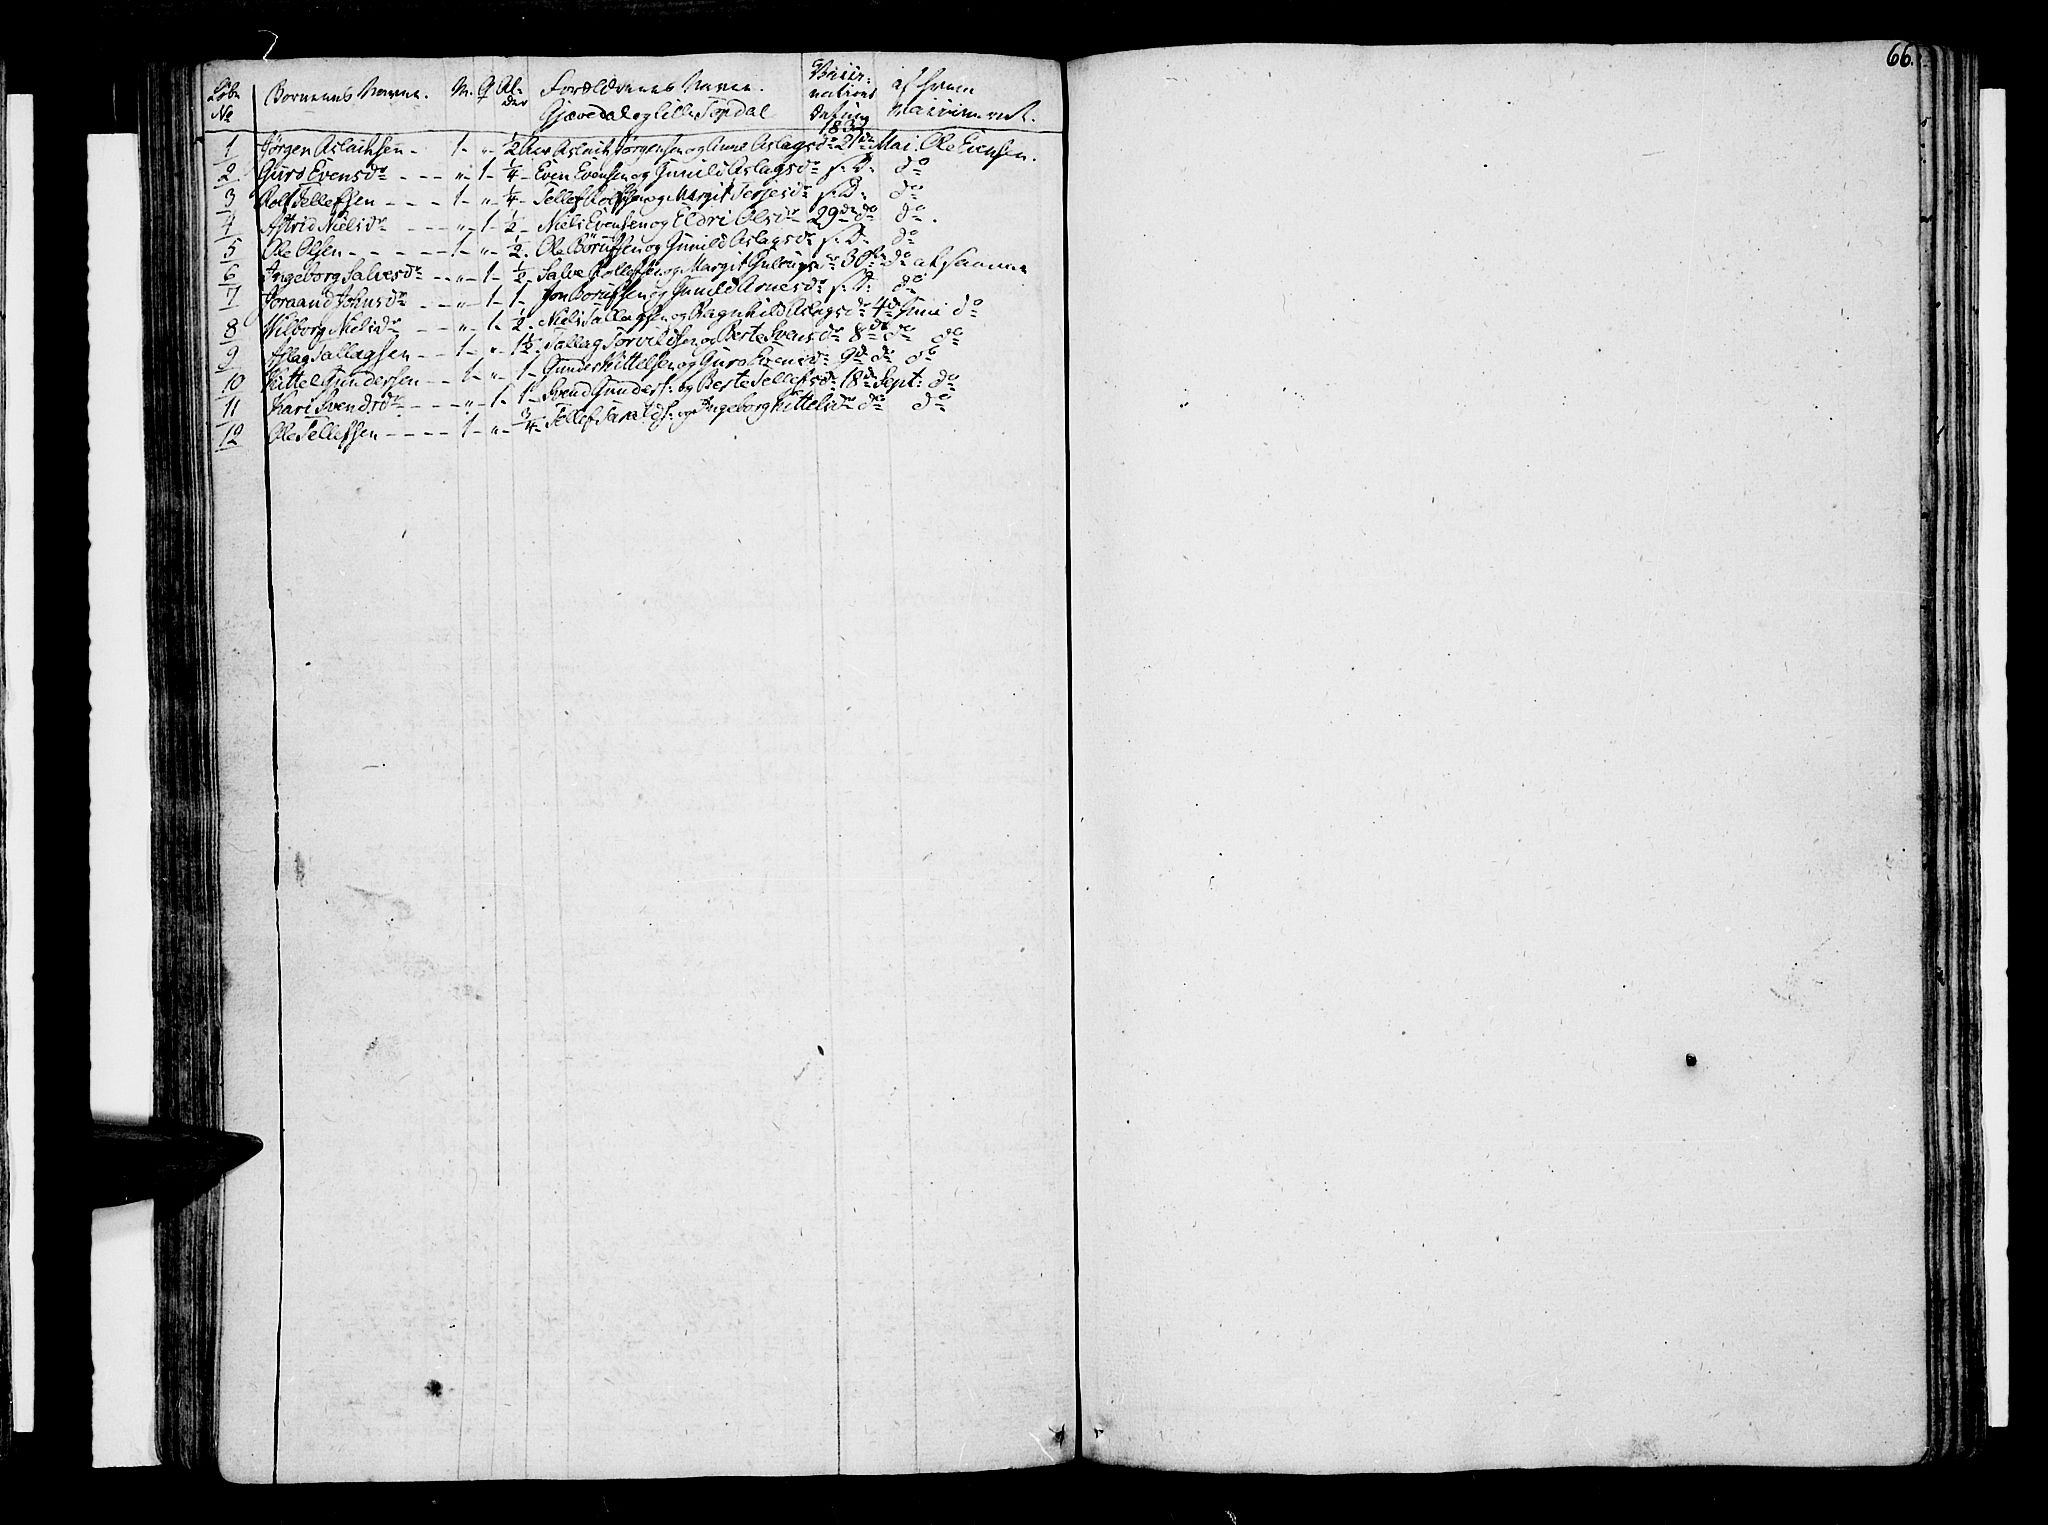 66.
Løbe No Børnenes Navne. M. Q Alder Forældrenes Navne. Gjøvedal og Lille Topdal Vaccinations Datum 1832 af hvem Vaccineret.
1 Jørgen Aslachsen - 1 - " - 1/2 Aar Aslach Jørgensen og Anne Aslagsdr 21de Mai. Ole Evensen.
2 Guro Evensdr - - - " - 1 - 1/4 - Even Evensen og Gunild Aslagsdr s. D. do
3 Rolf Tellefsen - - - 1 - " - 1/4 - Tellef Rolfsen og Margit Terjesdr s. D. do
4 Astrid Nielsdr - - - " - 1 - 1/2 - Niels Evensen og Eldri Olsdr 29de do do.
5 Ole Olsen - - - - - 1 - " - 1/2. Ole Børufsen og Gunild Aslagsdr s. D. do
6 Ingeborg Salvesdr - - " - 1 - 1/2 - Salve Rollefsen og Margit 30te do af samme
7 Joraand Johnsdr - - " - 1 - 1 - Jon Børufsen og Gunild Arnesdr s. D. do
8 Vilborg Nielsdr - - " - 1 - 1/2. Niels Tallagsen og Ragnhild Aslagsdr 4de Juni do
9 Aslag Tallagsen - - 1 - " - 1 1/2. Tallag Torvildsen og Berte Evensdr 8de do do
10 Kittel Gundersen - - 1 - " - 1 - Gunder Kittelsen og Guro Evensdr 9de do do
11 Kari Svendsdr - - - - " - 1 - 1 - Svend Gunders: og Berte Tellefsdr 18de Sept: do
12 Ole Tellefsen - - - - 1 - " - 3/4 - Tellef og Ingeborg Kittelsdr do do